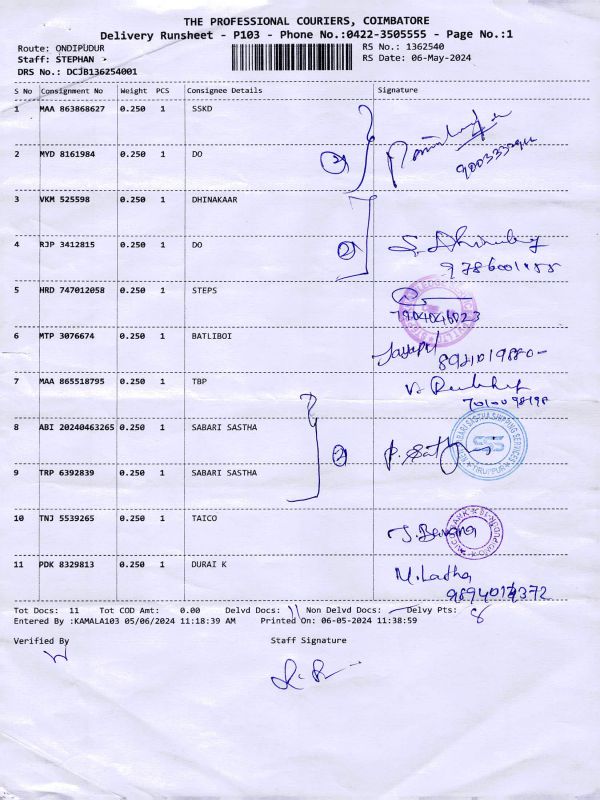 THE PROFESSIONAL COURIERS, COIMBATORE
Delivery Runsheet - P103 - Phone No.:0422-3505555 - Page No.:1
Route: ONDIPUDUR
RS No.: 1362540
Staff: STEPHAN
RS Date: 06-May-2024
DRS No.: DCJB136254001
S No Consignment No Weight PCS Consignee Details Signature
1 MAA 863868627 0.250 1 SSKD
2 MYD 8161984 0.250 1 DO
2
3 VKM 525598 0.250 1 DHINAKAAR
4 RJP 3412815 0.250 1 DO
2
5 HRD 747012058 0.250 1 STEPS
7904046023
6 MTP 3076674 0.250 1 BATLIBOI
7 MAA 865518795 0.250 1 TBP
8 ABI 20240463265 0.250 1 SABARI SASTHA
SABARI SASTHA SHIPPING SERVICES
SSS
TIRUPPUR
2
9 TRP 6392839 0.250 1 SABARI SASTHA
10 TNJ 5539265 0.250 1 TAICO
11 PDK 8329813 0.250 1 DURAI K
M. Latha
Tot Docs: 11 Tot COD Amt: 0.00 Delvd Docs: 11 Non Delvd Docs: — Delvy Pts: 8
Entered By :KAMALA103 05/06/2024 11:18:39 AM Printed On: 06-05-2024 11:38:59
Verified By Staff Signature